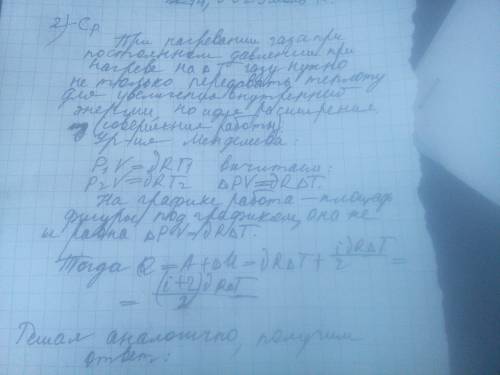 2) - Cp
При нагревании газа при
постоянном давлении при
нагреве на Δ T газу нужно
не только передовать теплоту
для увеличения внутренней
энергии, но и для расширения
(совершения работы).
Ур-ия Менделеева:
P₁V = ∂RT₁ вычитаем:
P₂V = ∂RT₂ ΔPV = ∂RΔT.
На графике работа - площадь
фигуры под графиком, она же
и равна ΔPV = ∂RΔT.
Тогда Q = A + ΔU = ∂RΔT + i∂RΔT/2 =
= (i+2)∂RΔT/2
Решая аналогично, получим
ответ: